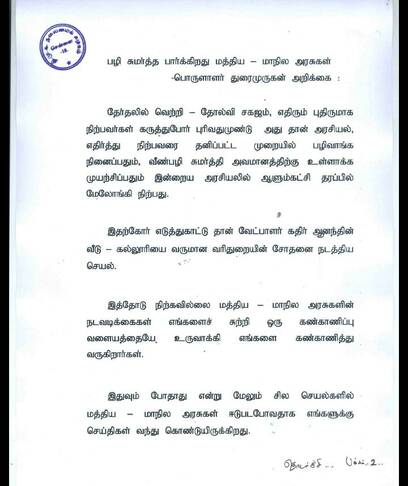 பழி சுமர்த்த பார்க்கிறது மத்திய – மாநில அரசுகள்
-பொருளாளர் துரைமுருகன் அறிக்கை :
தேர்தலில் வெற்றி – தோல்வி சகஜம், எதிரும் புதிருமாக
நிற்பவர்கள் கருத்துபோர் புரிவதுமுண்டு அது தான் அரசியல்,
எதிர்த்து நிற்பவரை தனிப்பட்ட முறையில் பழிவாங்க
நினைப்பதும், வீண்பழி சுமர்த்தி அவமானத்திற்கு உள்ளாக்க
முயற்சிப்பதும் இன்றைய அரசியலில் ஆளும்கட்சி தரப்பில்
மேலோங்கி நிற்பது.
இதற்கோர் எடுத்துகாட்டு தான் வேட்பாளர் கதிர் ஆனந்தின்
வீடு – கல்லூரியை வருமான வரிதுறையின் சோதனை நடத்திய
செயல்.
இத்தோடு நிற்கவில்லை மத்திய – மாநில அரசுகளின்
நடவடிக்கைகள் எங்களைச் சுற்றி ஒரு கண்காணிப்பு
வளையத்தையே உருவாக்கி எங்களை கண்காணித்து
வருகிறார்கள்.
இதுவும் போதாது என்று மேலும் சில செயல்களில்
மத்திய – மாநில அரசுகள் ஈடுபடபோவதாக எங்களுக்கு
செய்திகள் வந்து கொண்டுயிருக்கிறது.